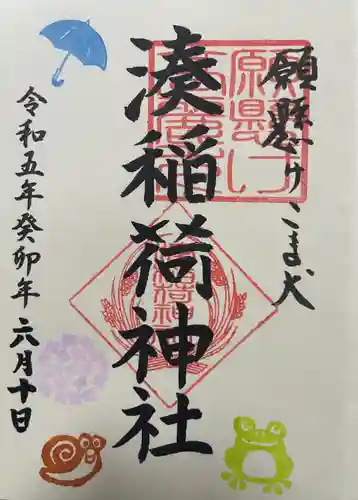 願懸け こま犬
湊稲荷神社
令和五年癸卯年 六月十日